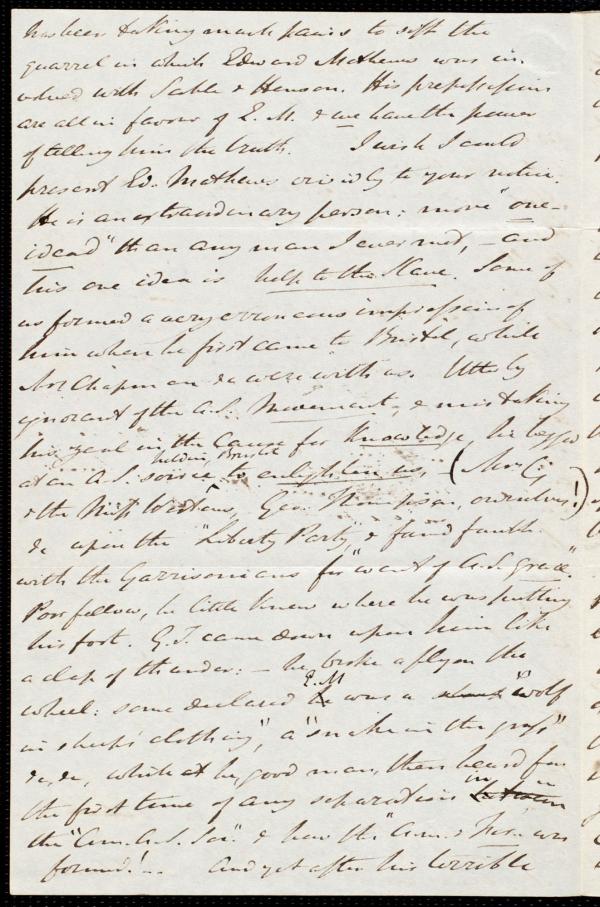 has been taking much pains to sift the
quarrel in which Edward Mathews was in-
volved with Sable & Henson. His prepossessions
are all in favour of E. M. & we have the power
of telling him the truth. I wish I could
present Ed. Mathews vividly to your notice.
He is an extraordinary person: more "one-
idead" than any man I ever met, - and
this one idea is help to the Slave. Some of
us formed a very erroneous impression of
him when he first came to Bristol, while
Mrs Chapman &c were with us. Utterly
ignorant of the A.S. Movement, & mistaking
his zeal in the Cause for knowledge, he begged
held in Bristol
at an A.S. soirée to enlighten us, (Mrs C,
& the Miss Westons, Geo. Thompson, ourselves!)
&c upon the "Liberty Party", & found fault
with the Garrisonians for "want of A.S. grace".
Poor fellow, he little knew where he was putting
his foot. G.T. came down upon him like
a clap of thunder: - he broke a fly on the
E.M
wheel: some declared he was a "wolf
in sheep's clothing", a "snake in the grass"
&c, &c, while he, good man, then heard for
the first time of any separation in
the "Am. A.S. Soc". & how the "Am. & For." was
formed! - And yet after his terrible